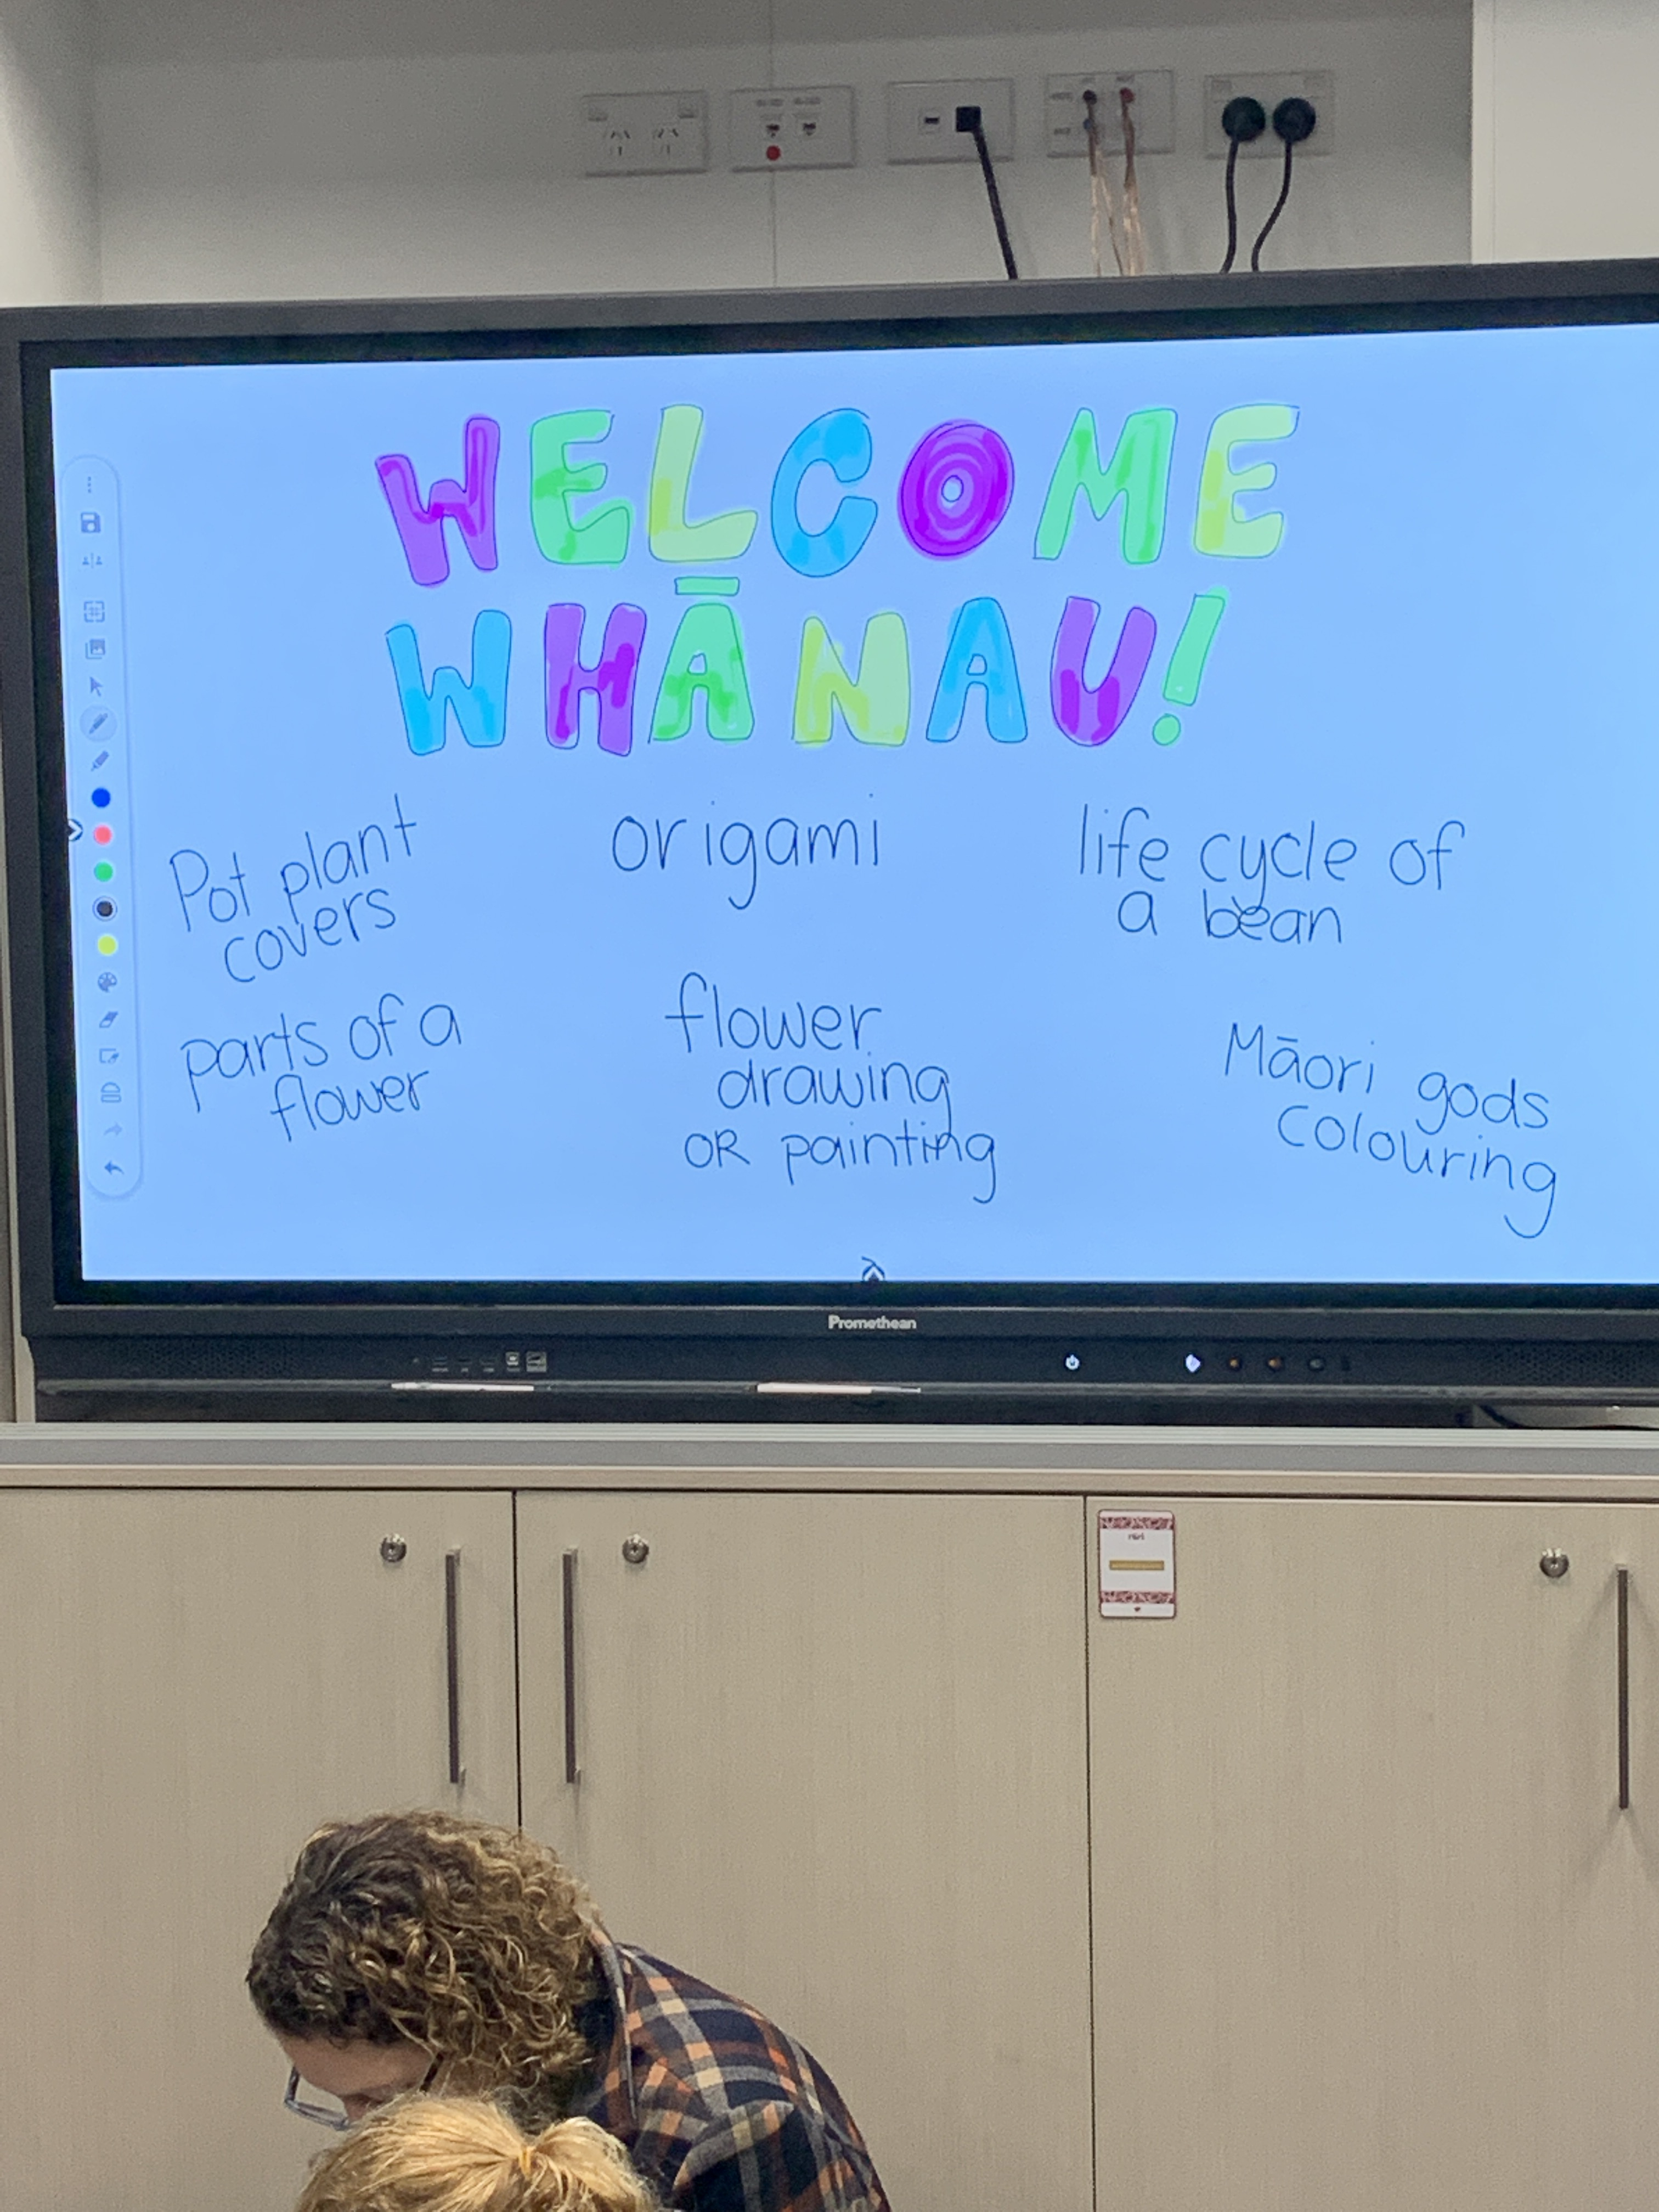 WELCOME
WHĀNAU!
Pot plant
covers
origami
life cycle of
a bean
parts of a
flower
flower
drawing
OR painting
Māori gods
colouring
Promethean